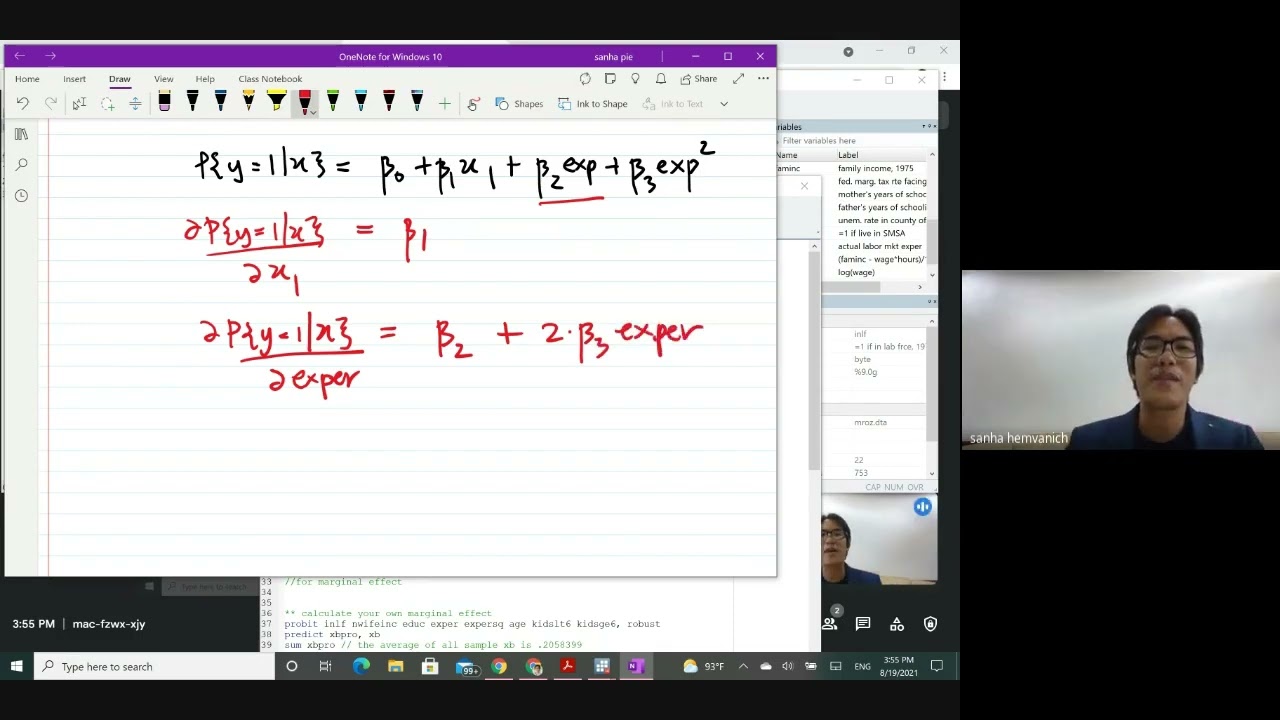 OneNote for Windows 10
sanha pie
Home Insert Draw View Help Class Notebook
Share
Shapes Ink to Shape Ink to Text
P{y=1|x} = β₀ + β₁x₁ + β₂exp + β₃exp²
∂P{y=1|x} = β₁
∂x₁
∂P{y=1|x} = β₂ + 2·β₃ exper
∂exper
riables
Filter variables here
Name Label
aminc family income, 1975
fed. marg. tax rte facing
mother's years of schoo
father's years of schooli
unem. rate in county of
=1 if live in SMSA
actual labor mkt exper
(faminc - wage*hours)/
log(wage)
inlf
=1 if in lab frce, 19
byte
%9.0g
mroz.dta
22
753
CAP NUM OVR
sanha hemvanich
2
Type here to search
33 //for marginal effect
34
35
36 ** calculate your own marginal effect
37 probit inlf nwifeinc educ exper expersq age kidslt6 kidsge6, robust
38 predict xbpro, xb
39 sum xbpro // the average of all sample xb is .2058399
3:55 PM | mac-fzwx-xjy
Type here to search
99+
93°F
ENG
3:55 PM
8/19/2021